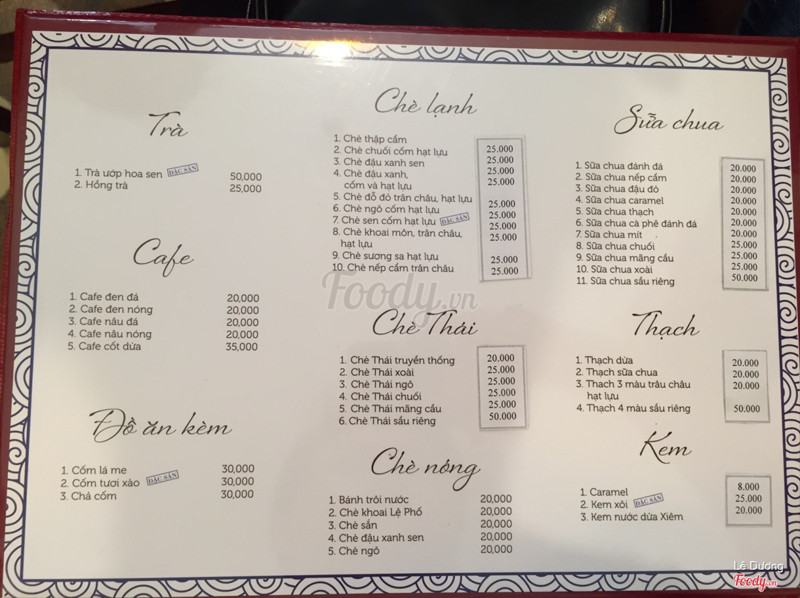 Trà
1. Trà ướp hoa sen ĐẶC SẢN 50,000
2. Hồng trà 25,000
Cafe
1. Cafe đen đá 20,000
2. Cafe đen nóng 20,000
3. Cafe nâu đá 20,000
4. Cafe nâu nóng 20,000
5. Cafe cốt dừa 35,000
Đồ ăn kèm
1. Cốm lá me 30,000
2. Cốm tươi xào ĐẶC SẢN 30,000
3. Chả cốm 30,000
Chè lạnh
1. Chè thập cẩm 25.000
2. Chè chuối cốm hạt lựu 25.000
3. Chè đậu xanh sen 25.000
4. Chè đậu xanh, 25.000
cốm và hạt lựu
5. Chè đỗ đỏ trân châu, hạt lựu 25.000
6. Chè ngô cốm hạt lựu 25.000
7. Chè sen cốm hạt lựu ĐẶC SẢN 25.000
8. Chè khoai môn, trân châu, 25.000
hạt lựu
9. Chè sương sa hạt lựu 25.000
10. Chè nếp cẩm trân châu 25.000
Chè Thái
1. Chè Thái truyền thống 20.000
2. Chè Thái xoài 25.000
3. Chè Thái ngô 25.000
4. Chè Thái chuối 25.000
5. Chè Thái mãng cầu 25.000
6. Chè Thái sầu riêng 50.000
Chè nóng
1. Bánh trôi nước 20,000
2. Chè khoai Lệ Phố 20,000
3. Chè sắn 20,000
4. Chè đậu xanh sen 20,000
5. Chè ngô 20,000
Sữa chua
1. Sữa chua đánh đá 20.000
2. Sữa chua nếp cẩm 20.000
3. Sữa chua đậu đỏ 20.000
4. Sữa chua caramel 20.000
5. Sữa chua thạch 20.000
6. Sữa chua cà phê đánh đá 20.000
7. Sữa chua mít 20.000
8. Sữa chua chuối 25.000
9. Sữa chua mãng cầu 25.000
10. Sữa chua xoài 25.000
11. Sữa chua sầu riêng 50.000
Thạch
1. Thạch dừa 20.000
2. Thạch sữa chua 20.000
3. Thạch 3 màu trâu châu 20.000
hạt lựu
4. Thạch 4 màu sầu riêng 50.000
Kem
1. Caramel 8.000
2. Kem xôi ĐẶC SẢN 25.000
3. Kem nước dừa Xiêm 20.000
Foody.vn
Lê Dương
Foody.vn